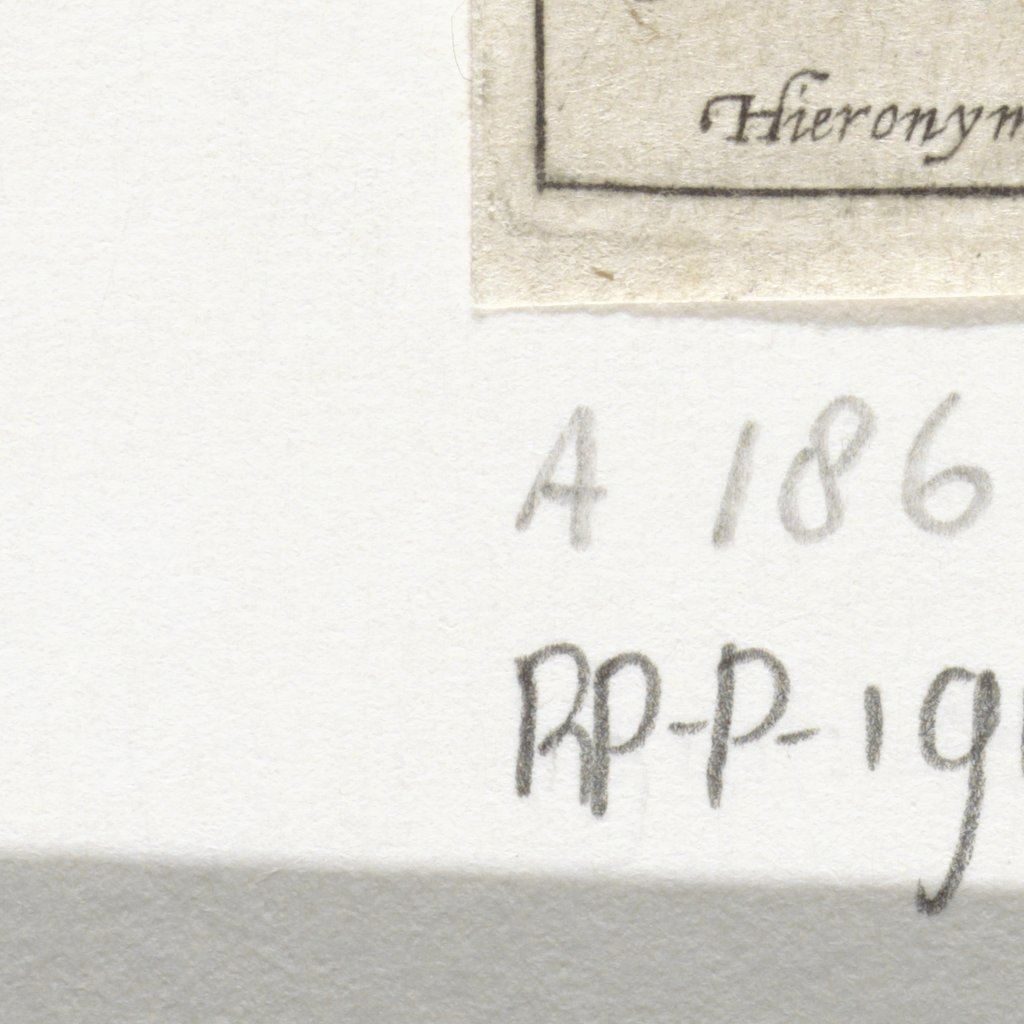 Hieronym
A 186
RP-P-191